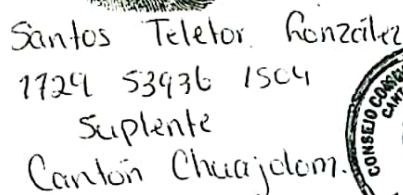 Santos Teletor González
1729 53936 1504
Suplente
Cantón Chuajolom.
CONSEJO